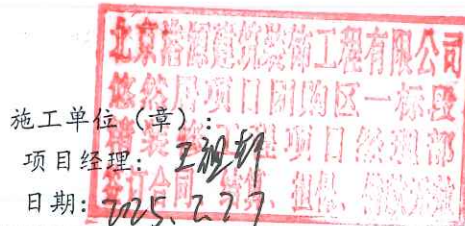 北京港源建筑装饰工程有限公司
悠然居项目团购区一标段
精装修工程项目经理部
签订合同、借贷、担保、
施工单位（章）：
项目经理：王祖朝
日期：2025.2.27